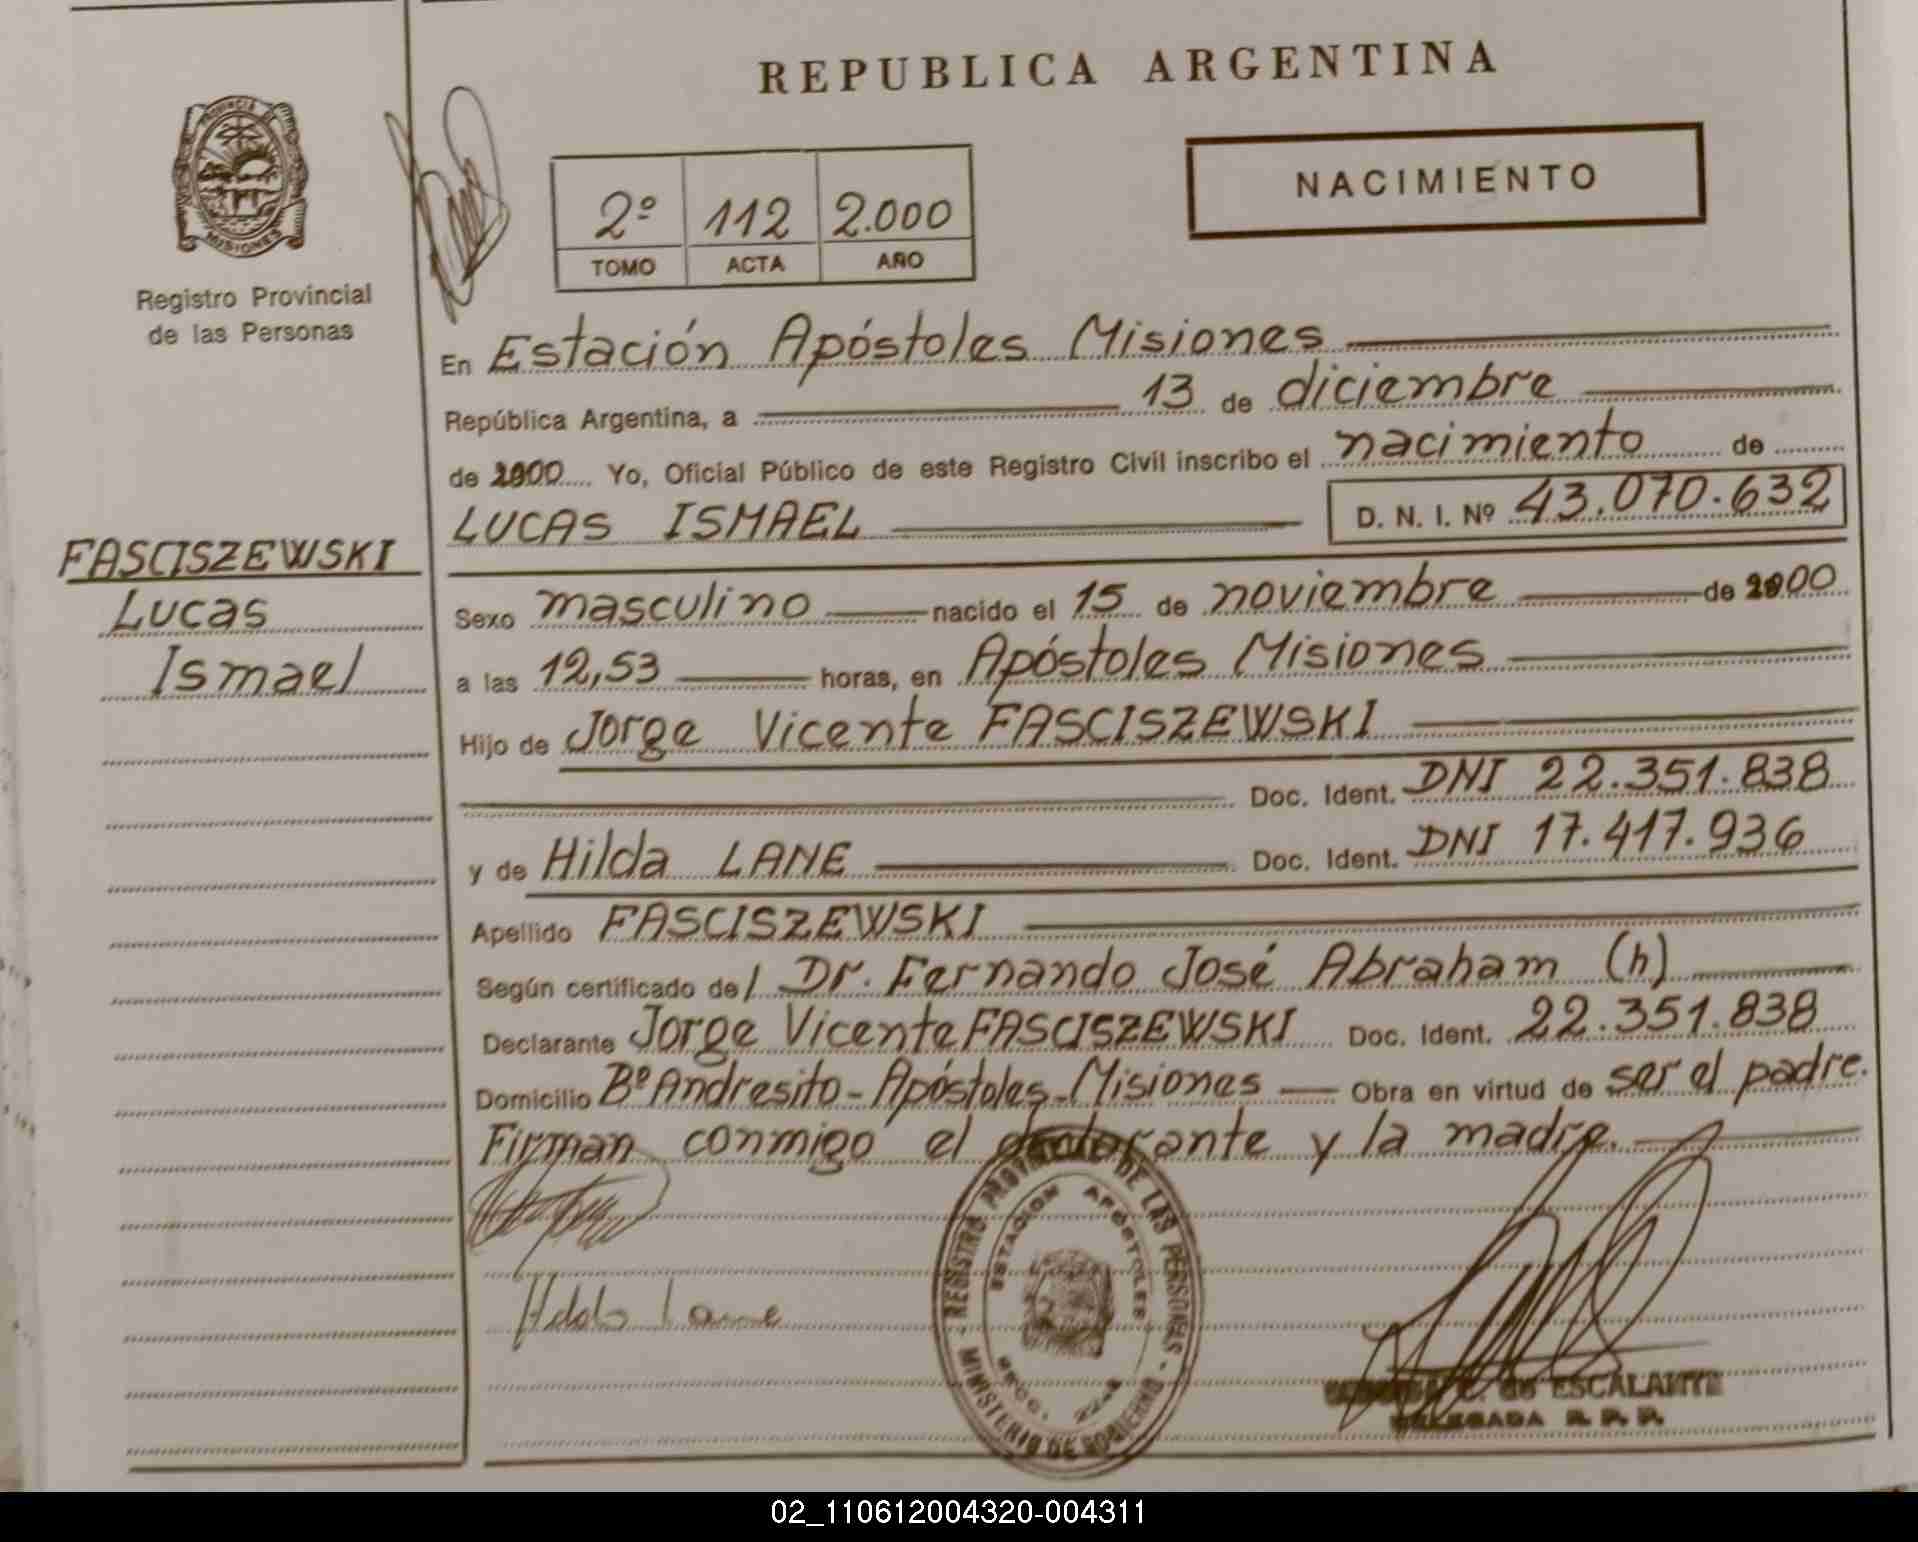 REPUBLICA ARGENTINA
PROVINCIA DE
MISIONES
Registro Provincial
de las Personas
NACIMIENTO
2º 112 2.000
TOMO ACTA AÑO
En Estación Apóstoles Misiones
República Argentina, a 13 de diciembre
de 2000 Yo, Oficial Público de este Registro Civil inscribo el nacimiento de
LUCAS ISMAEL D. N. I. Nº 43.070.632
FASCISZEWSKI
Lucas
Ismael
Sexo masculino nacido el 15 de noviembre de 2000
a las 12,53 horas, en Apóstoles Misiones
Hijo de Jorge Vicente FASCISZEWSKI
Doc. Ident. DNI 22.351.838
y de Hilda LANE Doc. Ident. DNI 17.417.936
Apellido FASCISZEWSKI
Según certificado del Dr. Fernando José Abraham (h)
Declarante Jorge Vicente FASCISZEWSKI Doc. Ident. 22.351.838
Domicilio Bº Andresito - Apóstoles - Misiones Obra en virtud de ser el padre.
Firman conmigo el declarante y la madre.
REGISTRO PROVINCIAL DE LAS PERSONAS - MINISTERIO DE GOBIERNO -
ESTACION APOSTOLES
Hilda Lane
de ESCALANTE
DELEGADA R. P. P.
02_110612004320-004311